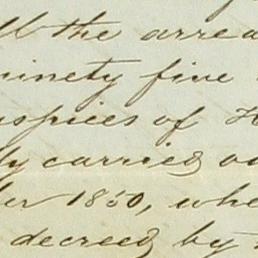 the arrea
ninety five
uspices of H
ly carried ou
ber 1850, whe
decreed by